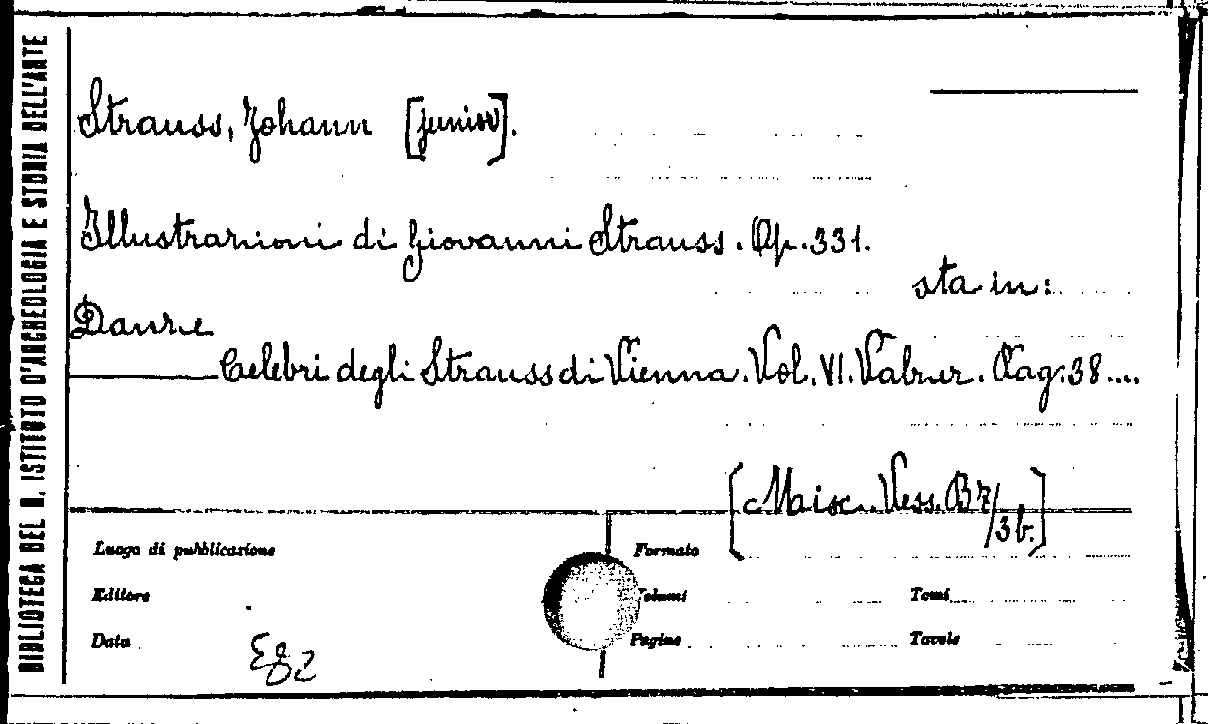 BIBLIOTECA DEL R. ISTITUTO D'ARCHEOLOGIA E STORIA DELL'ARTE
Strauss, Johann [junior].
Illustrazioni di Giovanni Strauss. Op. 331.
sta in:
Danze
Celebri degli Strauss di Vienna. Vol. VI. Valzer. Pag. 38....
[Misc. Vess. B 7/3 b.]
Luogo di pubblicazione
Formato
Editore
Volumi
Tomi
Data
Pagine
Tavole